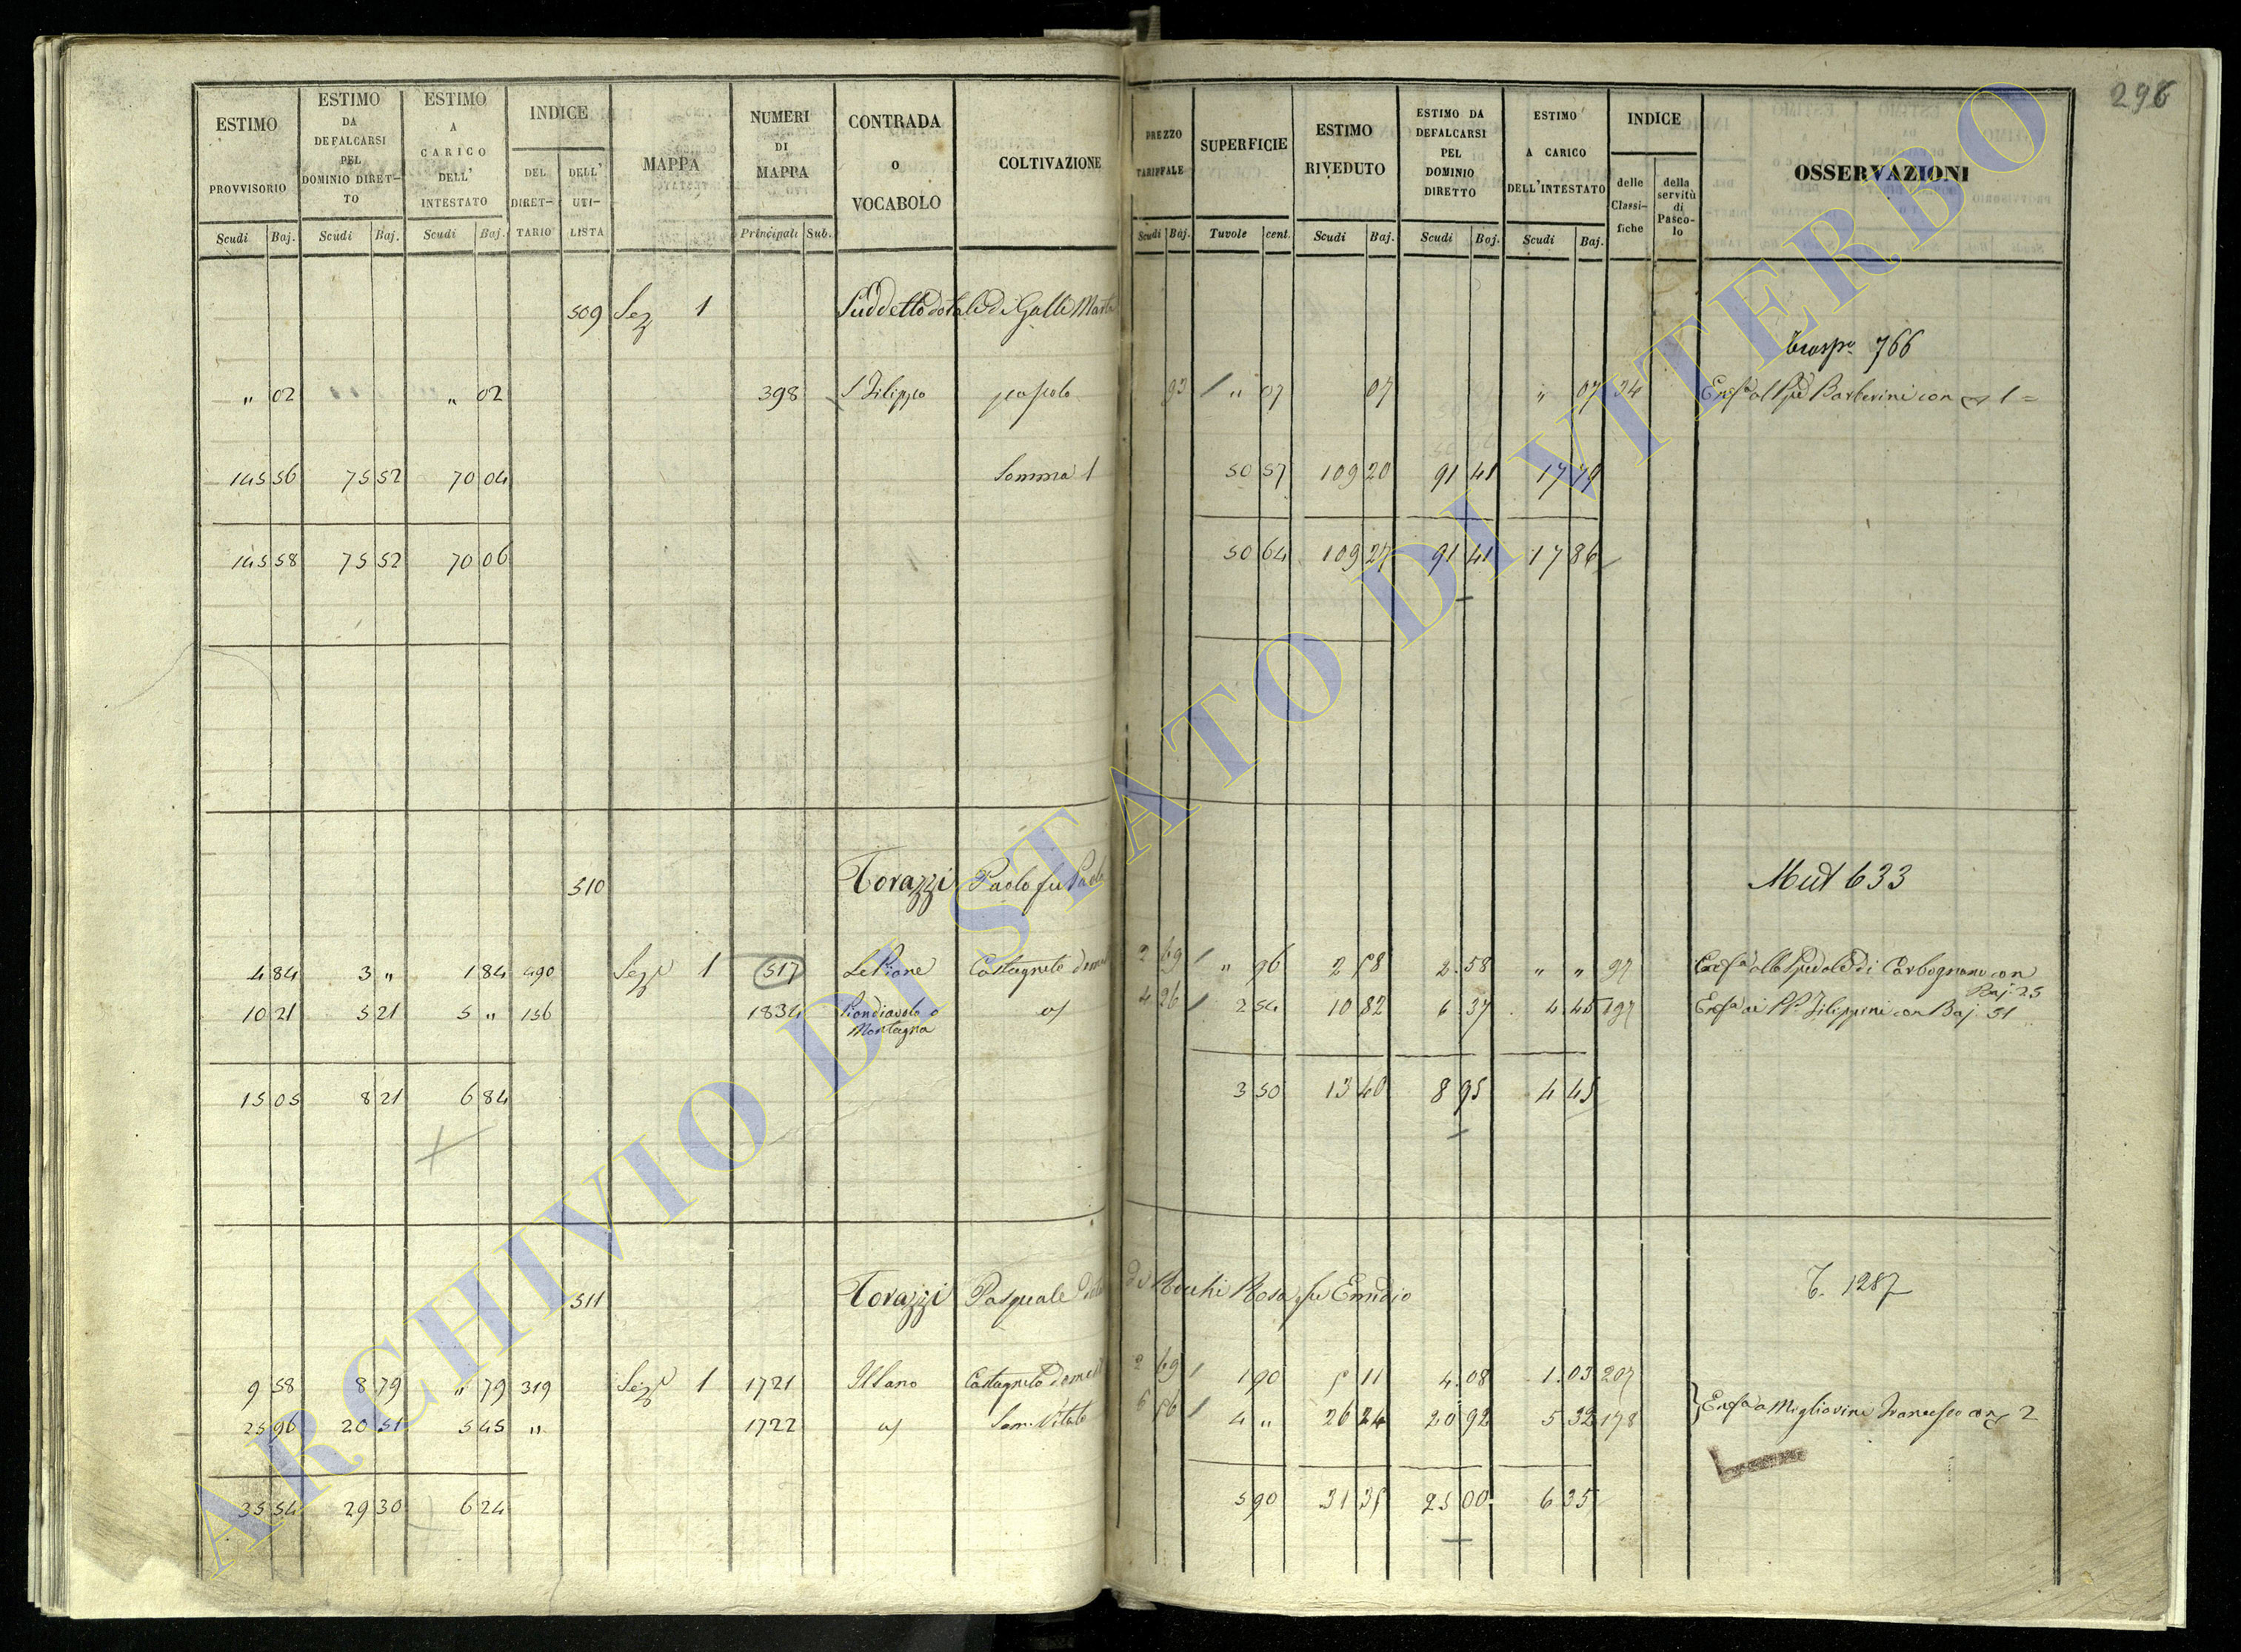 296
ESTIMO
PROVVISORIO
Scudi Baj.
ESTIMO
DA
DEFALCARSI
PEL
DOMINIO DIRET-
TO
Scudi Baj.
ESTIMO
A
CARICO
DELL'
INTESTATO
Scudi Baj.
INDICE
DEL
DIRET-
TARIO
DELL'
UTI-
LISTA
MAPPA
NUMERI
DI
MAPPA
Principali Sub.
CONTRADA
o
VOCABOLO
COLTIVAZIONE
PREZZO
TARIFFALE
Scudi Baj.
SUPERFICIE
Tavole cent.
ESTIMO
RIVEDUTO
Scudi Baj.
ESTIMO DA
DEFALCARSI
PEL
DOMINIO
DIRETTO
Scudi Baj.
ESTIMO
A CARICO
DELL'INTESTATO
Scudi Baj.
INDICE
delle
Classi-
fiche
della
servitù
di
Pasco-
lo
OSSERVAZIONI
509 Sez 1 Suddetto dotale di Galli Marta
Trasp. 766
" 02 " 02 398 S Filippo pascolo 93 " 07 07 " 07 34 Enfa al Barberini con 1
145 56 75 52 70 04 Somma 1 50 57 109 20 91 41 17 79
145 58 75 52 70 06 50 64 109 27 91 41 17 86
510 Torazzi Paolo fu Paolo Mut 633
4 84 3 " 1 84 490 Sez 1 517 Le Piane Castagneto 2 69 " 96 2 58 2.58 " " 97 Enfa allo Spedale di Carbognano con
Baj. 25
10 21 5 21 5 " 156 1834 Piandiavolo o 4 26 2 54 10 82 6 37 4 45 197 Enfa ai PP Filippini con Baj 51
Montagna
15 05 8 21 6 84 3 50 13 40 8 95 4 45
511 Torazzi Pasquale di Rocchi Rosa fu Emidio T. 1287
9 58 8 79 " 79 319 Sez 1 1721 Castagneto 2 69 1 90 5 11 4.08 1.03 207
25 96 20 51 5 45 " 1722 Sem. Vitato 6 56 4 " 26 24 20 92 5 32 178 Enfa a Migliorini Francesco con 2
35 54 29 30 6 24 5 90 31 35 25 00 6 35
ARCHIVIO DI STATO DI VITERBO